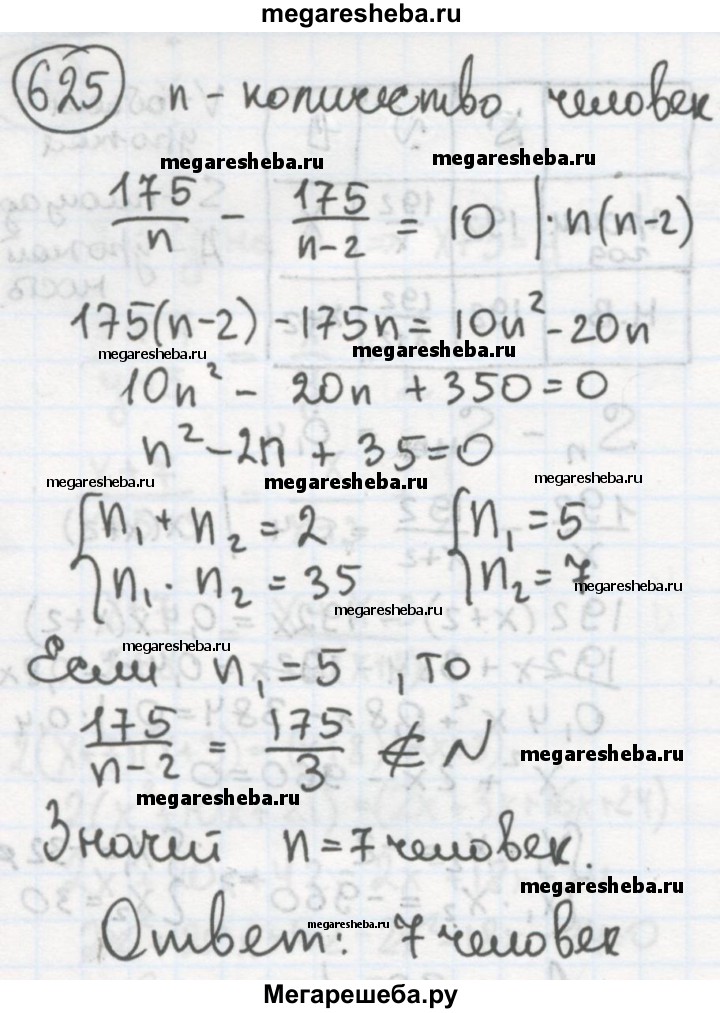 megaresheba.ru
625 n - количество человек
megaresheba.ru megaresheba.ru
175/n - 175/(n-2) = 10 |·n(n-2)
175(n-2) - 175n = 10n² - 20n
megaresheba.ru megaresheba.ru
10n² - 20n + 350 = 0
n² - 2n + 35 = 0
megaresheba.ru megaresheba.ru megaresheba.ru
{ n₁ + n₂ = 2 { n₁ = 5
{ n₁ · n₂ = 35 { n₂ = 7
megaresheba.ru megaresheba.ru
megaresheba.ru
Если n₁ = 5, то
175/(n-2) = 175/3 ∉ N
megaresheba.ru
megaresheba.ru
Значит n = 7 человек.
megaresheba.ru
megaresheba.ru
Ответ: 7 человек
Мегарешеба.ру